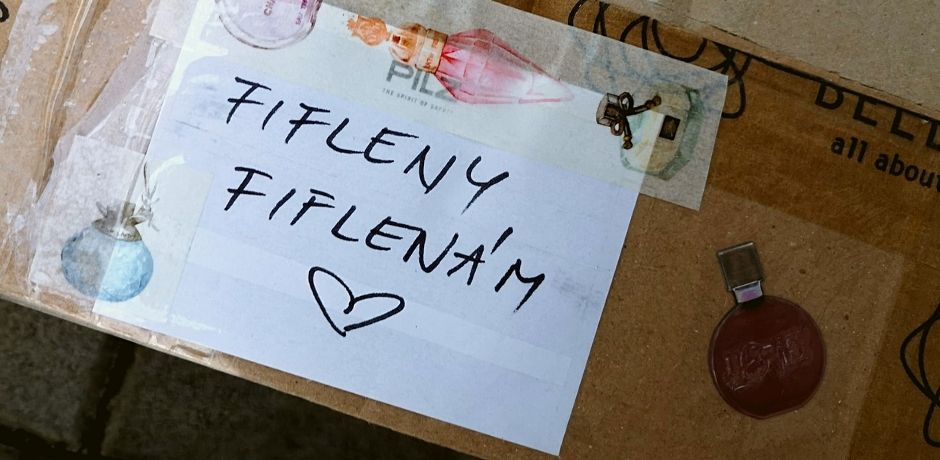 PILZ
THE SPIRIT OF SAFETY
FIFLENY
FIFLENÁM
all about